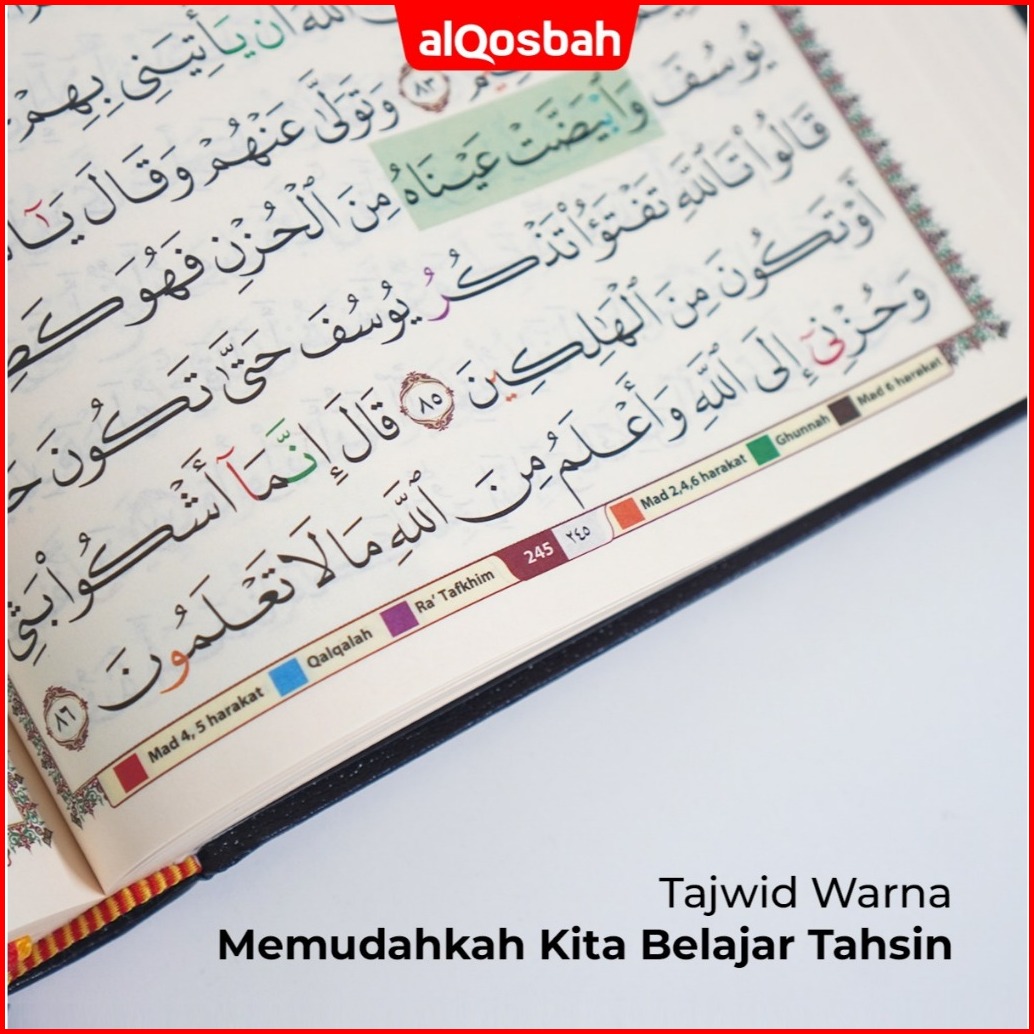 alQosbah
ٱللَّهُ أَن يَأْتِيَنِى بِهِمْ
٨٣ وَتَوَلَّىٰ عَنْهُمْ وَقَالَ
يُوسُفَ وَٱبْيَضَّتْ عَيْنَاهُ مِنَ ٱلْحُزْنِ فَهُوَ
قَالُوا۟ تَٱللَّهِ تَفْتَؤُا۟ تَذْكُرُ يُوسُفَ حَتَّىٰ تَكُونَ
أَوْ تَكُونَ مِنَ ٱلْهَـٰلِكِينَ ٨٥ قَالَ إِنَّمَآ أَشْكُوا۟ بَثِّى
وَحُزْنِىٓ إِلَى ٱللَّهِ وَأَعْلَمُ مِنَ ٱللَّهِ مَا لَا تَعْلَمُونَ ٨٦
Mad 4, 5 harakat Qalqalah Ra' Tafkhim 245 ٢٤٥ Mad 2,4,6 harakat Ghunnah Mad 6 harakat
Tajwid Warna
Memudahkah Kita Belajar Tahsin